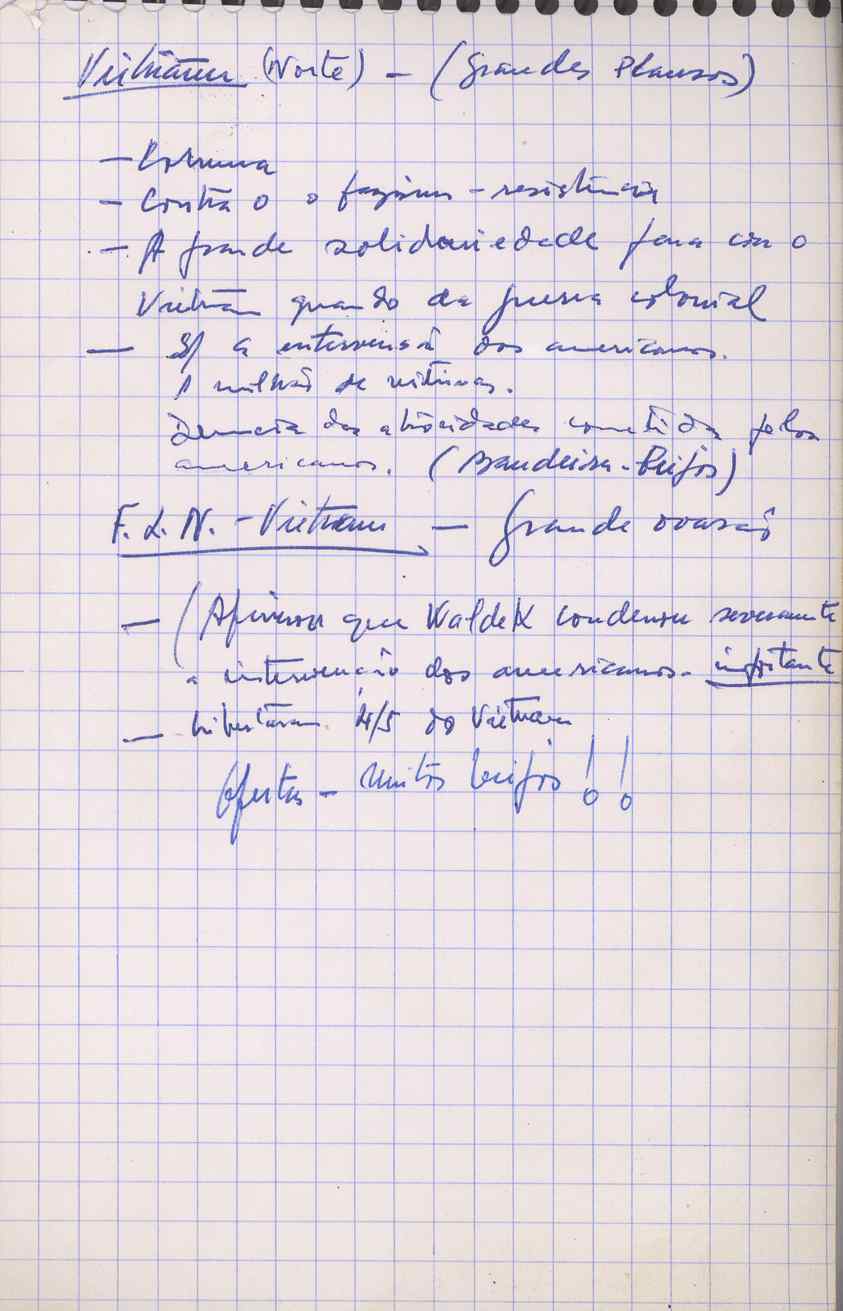 Vietnam (Norte) - (Grandes Plausos)
- Comuna
- Contra o o fascismo - resistência
- A grande solidariedade para com o
Vietnam quando da guerra colonial
- S/ a intervensão dos americanos.
1 milhão de vitimas.
Denuncia das atrocidades cometidas pelos
americanos. (Bandeira - Beijos)
F. L. N. - Vietnam - Grande ovasão
- (Afirmou que Waldek condenou severamente
a intervenção dos americanos - importante
- Libertaram 4/5 do Vietnam
Ofertas - Muitos beijos!!